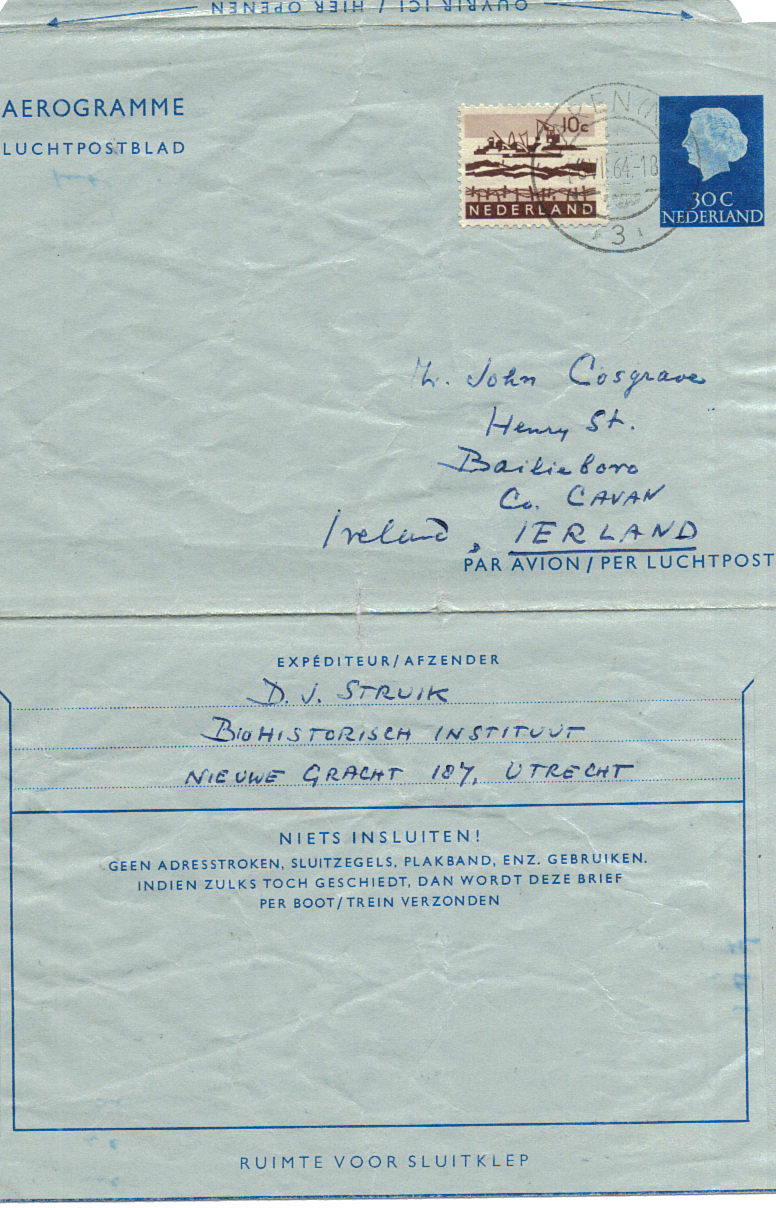 OUVRIR ICI / HIER OPENEN
AEROGRAMME
LUCHTPOSTBLAD
10c
NEDERLAND
64.-18
3
30 C
NEDERLAND
Mr. John Cosgrave
Henry St.
Bailieboro
Co. CAVAN
Ireland, IERLAND
PAR AVION / PER LUCHTPOST
EXPÉDITEUR / AFZENDER
D. J. STRUIK
BIOHISTORISCH INSTITUUT
NIEUWE GRACHT 187, UTRECHT
NIETS INSLUITEN!
GEEN ADRESSTROKEN, SLUITZEGELS, PLAKBAND, ENZ. GEBRUIKEN.
INDIEN ZULKS TOCH GESCHIEDT, DAN WORDT DEZE BRIEF
PER BOOT / TREIN VERZONDEN
RUIMTE VOOR SLUITKLEP